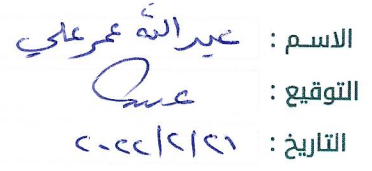 الاسم : عبدالله عمر علي
التوقيع :
التاريخ : ٢٠٢٢/٢/٢١